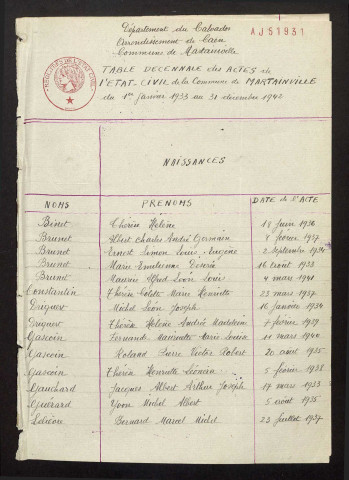 Département du Calvados
Arrondissement de Caen
Commune de Martainville
AJ51931
TABLE DECENNALE des ACTES de
l'ETAT-CIVIL de la Commune de MARTAINVILLE
du 1er Janvier 1933 au 31 décembre 1942
NAISSANCES
NOMS PRENOMS DATE de l'ACTE
Binet Thérèse Hélène 18 Juin 1936
Brunet Albert Charles André Germain 8 février 1937
Brunet Ernest Simon Louis Eugène 2 Septembre
Brunet Marie Désirée 16 août 1933
Brunet Maurice Alfred Léon Louis 4 mars 1941
Constentin Thérèse Colette Marie Henriette 23 mars 1937
Michel Léon Joseph 16 Janvier 1934
Thérèse Hélène Andrée Madeleine 7 février 1939
Gascoin Fernande Marie Louise 11 mars 1940
Gascoin Roland Pierre Victor Robert 20 août 1935
Gascoin Thérèse Henriette 5 février 1938
Gauchard Jacques Albert Arthur Joseph 19 mars 1933
Guérard Yvon Michel Albert 5 août 1935
Bernard Marcel Michel 23 Juillet 1937